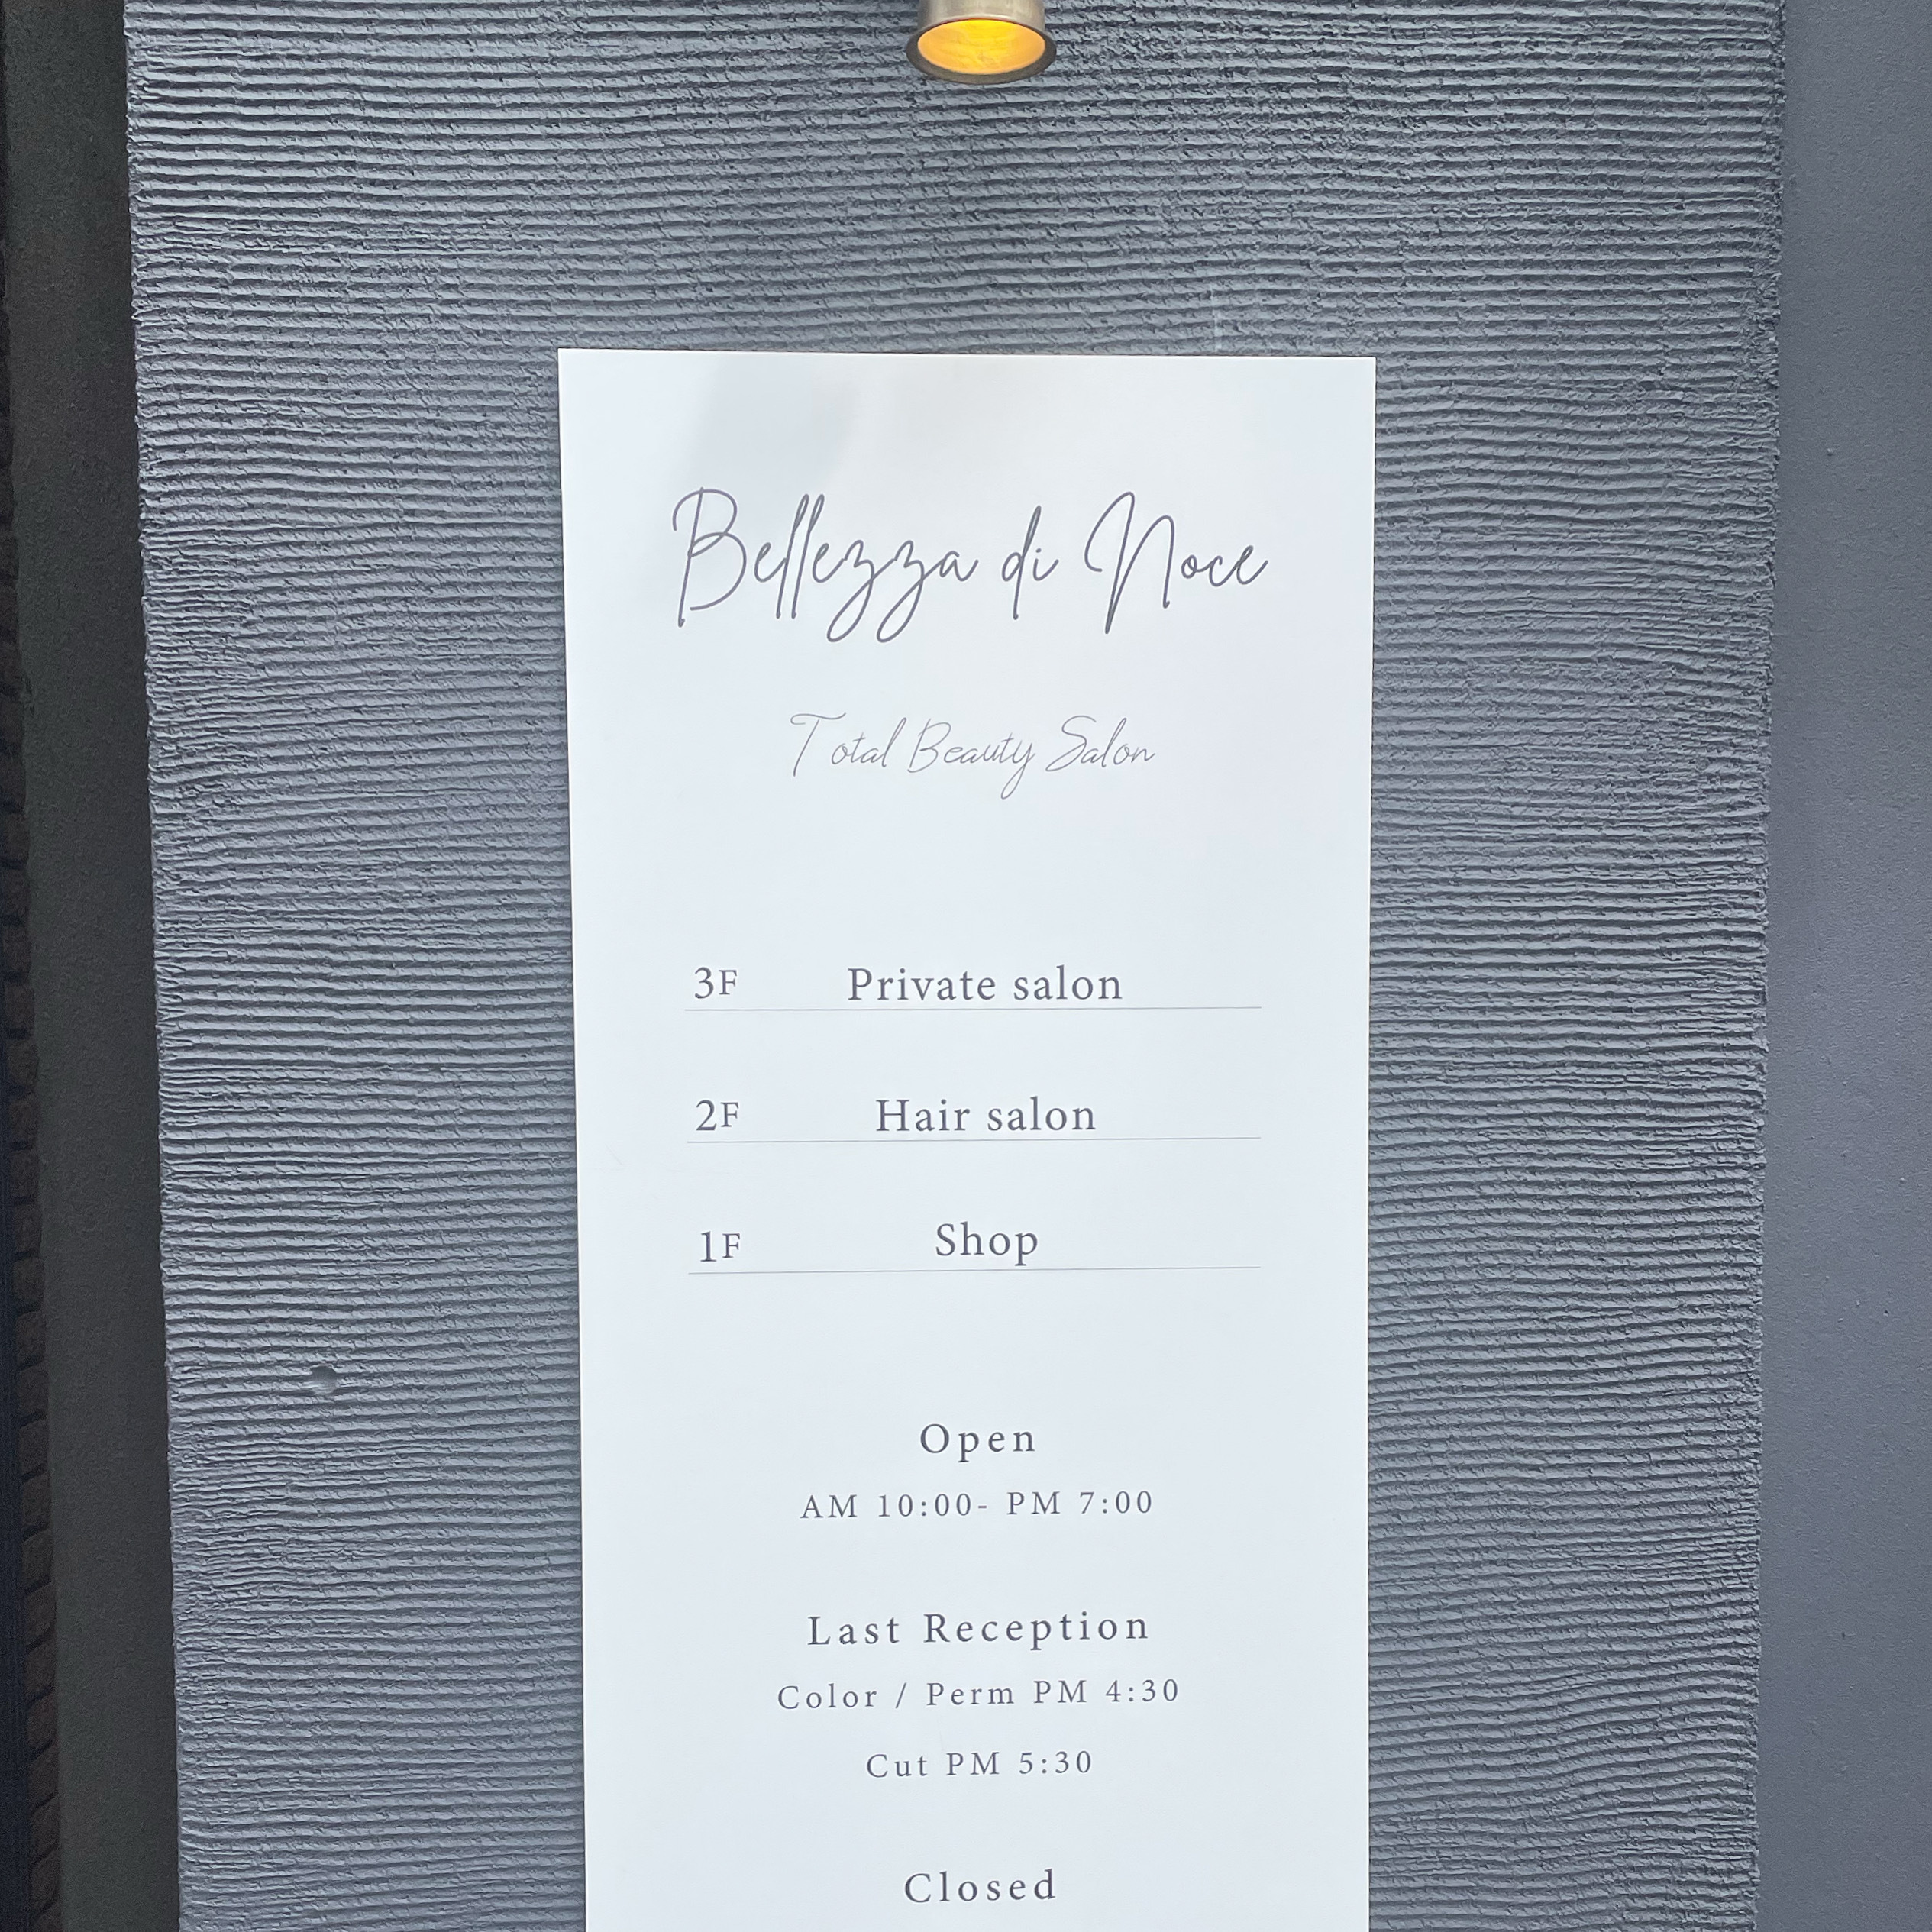 Bellezza di Noce
Total Beauty Salon
3F Private salon
2F Hair salon
1F Shop
Open
AM 10:00- PM 7:00
Last Reception
Color / Perm PM 4:30
Cut PM 5:30
Closed